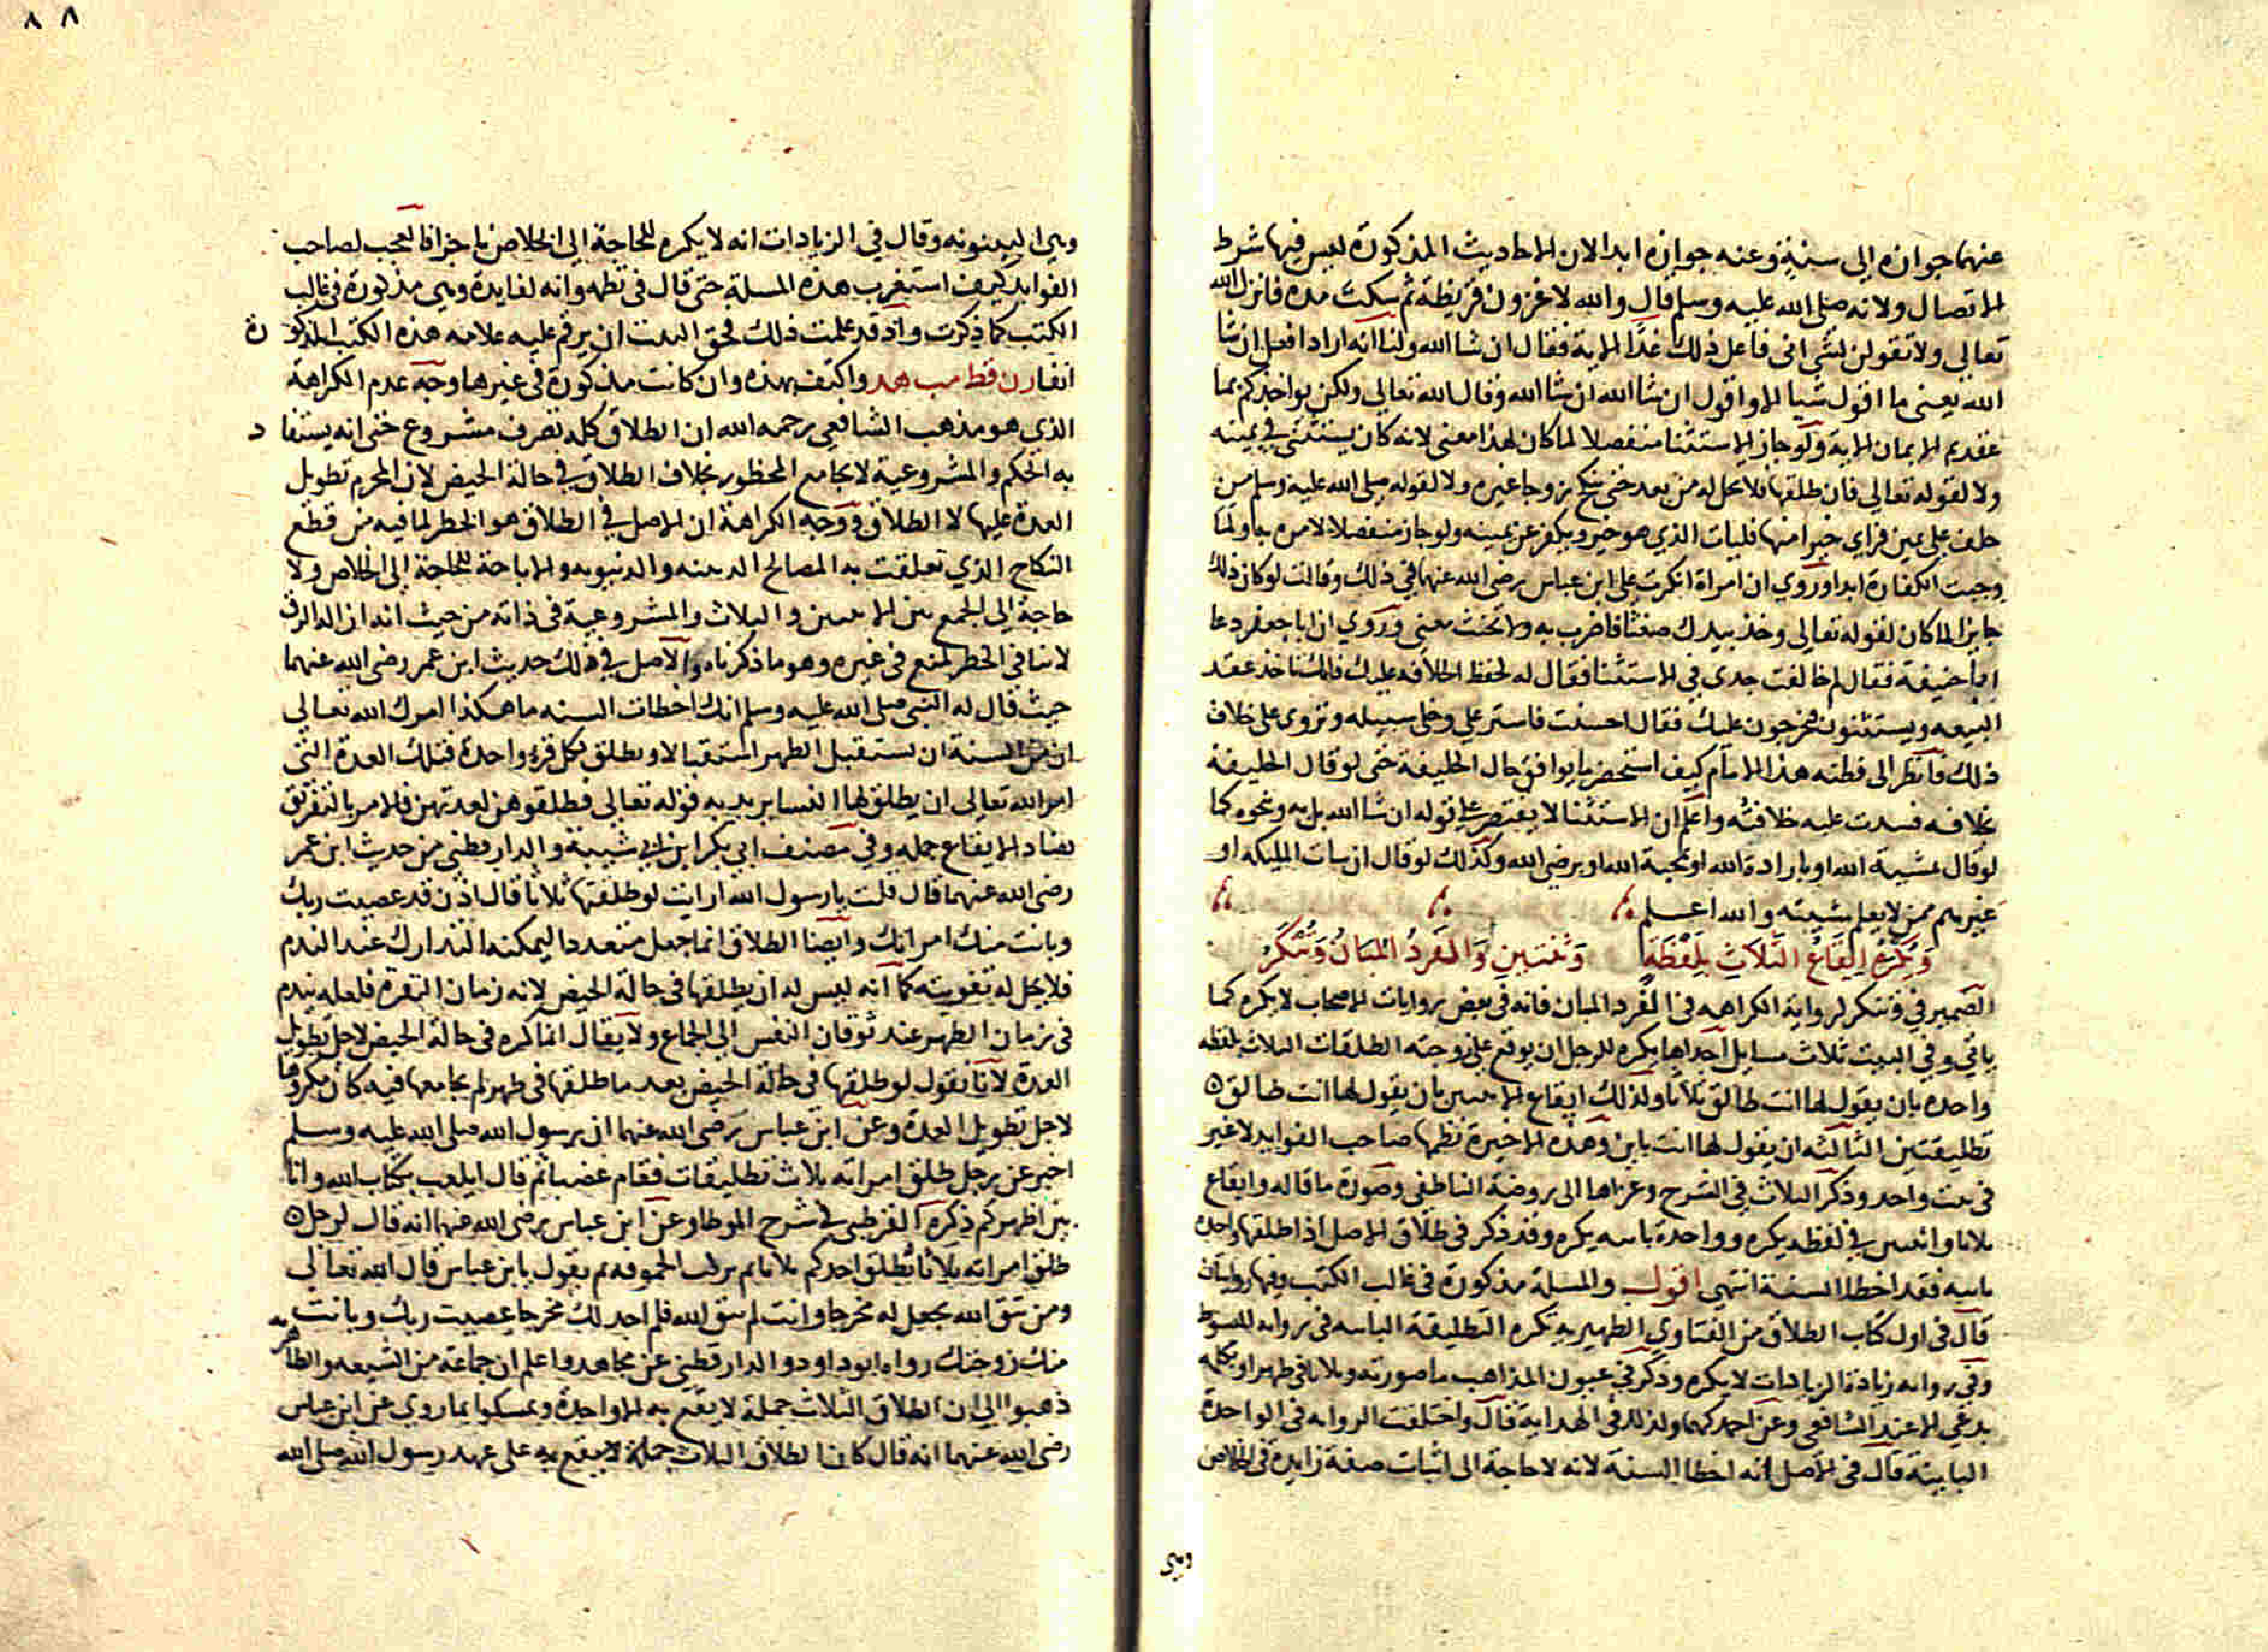 عنهما جوازه الى سنة وعنه جوازه ابدا لان الاحاديث المذكورة ليس فيها شرط
الاتصال ولانه صلى الله عليه وسلم قال والله لاغزون قريظة ثم سكت مده فانزل الله
تعالى ولا تقولن لشي اني فاعل ذلك غدًا الاية فقال ان شا الله ولنا انه اراد افعل ان شا
الله يعنى ما اقول شيا الا واقول ان شا الله ان شا الله وقال الله تعالى ولكن يواخذكم بما
عقدتم الايمان الاية ولو جاز الاستثنا منفصلا لما كان لهذا معنى لانه كان يستثنى في يمينه
ولا لقوله تعالى فان طلقها فلا تحل له من بعد حتى تنكح زوجا غيره ولا لقوله صلى الله عليه وسلم من
حلف على يمين فراى خيرا منها فليات الذي هو خير ويكفر عن يمينه ولو جاز منفصلا لامره بها ولما
وجبت الكفارة ابدا وروي ان امراة انكرت على ابن عباس رضى الله عنهما في ذلك وقالت لو كان ذلك
جايزا لما كان لقوله تعالى وخذ بيدك ضغثا فاضرب به ولا تحنث معنى وروي ان ابا جعفر دعا
ابا حنيفة فقال لم خالفت جدى في الاستثنا فقال له لحفظ الخلافه عليك فانك تاخذ عقد
البيعه ويستثنون فيخرجون عليك فقال احسنت فاستر علي وخلى سبيله وتروى على خلاف
ذلك فانظر الى فطنه هذا الامام كيف استحضر ما يوافق حال الخليفة حتى لو قال الخليفة
بخلافه فسدت عليه خلافته واعلم ان الاستثنا لا يقتصر على قوله ان شا الله بل به ونحوه كما
لو قال بمشيية الله او بارادة الله او بمحبة الله او برضى الله وكذلك لو قال ان شات المليكه او
غيرهم ممن لا يعلم مشيته والله اعلم
وَيُكْرَهُ اِيقَاعُ الثَّلَاثِ بِلَفْظَةٍ وَثِنْتَيْنِ وَالمفردُ المُبَانُ وَتُنكَرُ
الضمير في وتنكر لرواية الكراهه فى المفرد المبان فانه فى بعض روايات الاصحاب لا يكره كما
ياتي وفي البيت ثلاث مسايل احداها يكره للرجل ان يوقع على زوجته الطلقات الثلاث بلفظه
واحده بان يقول لها انت طالق ثلاثا ولذلك ايقاع الاثنين بان يقول لها انت طالق
تطليقتين الثالثه ان يقول لها انت باين وهذه الاخيرة نظمها صاحب الفوايد لا غير
في بيت واحد وذكر الثلاث في الشرح وعزاها الى روضة الناطفى وصورة ما قاله وايقاع
ثلاثا واثنين في لفظه يكره وواحدة باينه يكره وقد ذكر فى طلاق الاصل اذا طلقها واحدة
باينه فقد اخطا السنة انتهى اقول والمسلة مذكورة فى غالب الكتب وفيها روايتان
قال فى اول كتاب الطلاق من الفتاوي الظهيريه تكره التطليقة الباينه فى رواية المبسوط
وفي رواية زيادة الزيادات لا يكره وذكر في عيون المذاهب ما صورته وثلاثا فى طهر او بكلمه
بدعي الا عند الشافعى وعن احمد كهما ولذلك في الهداية قال واختلفت الروايه فى الواحدة
الباينة قال فى الاصل انه اخطا السنة لانه لا حاجة الى اثبات صفة زايدة فى الخلاص
وهى
٨ ٨
وهى البينونه وقال في الزيادات انه لا يكره للحاجة الى الخلاص ناجزا فالعجب لصاحب
الفوايد كيف استغرب هذه المسلة حتى قال فى نظمه وانه لفايدة وهى مذكورة فى غالب
الكتب كما ذكرت واذ قد علمت ذلك فحق البيت ان يرقم عليه علامه هذه الكتب المذكورة
واكتف بهذه وان كانت مذكورة فى غيرها وجه عدم الكراهة
الذي هو مذهب الشافعى رحمه الله ان الطلاق كله تصرف مشروع حتى انه يستفاد
به الحكم والمشروعية لا تجامع المحظور بخلاف الطلاق في حالة الحيض لان المحرم تطويل
العدة عليها لا الطلاق ووجه الكراهة ان الاصل في الطلاق هو الحظر لما فيه من قطع
النكاح الذي تعلقت به المصالح الدينيه والدنيويه والاباحة للحاجة الى الخلاص ولا
حاجة الى الجمع بين الاثنين و الثلاث والمشروعية فى ذاته من حيث انه ازالة الرق
لا ينافى الحظر لمنع فى غيره وهو ما ذكرناه والاصل في ذلك حديث ابن عمر رضى الله عنهما
حيث قال له النبي صلى الله عليه وسلم انك اخطات السنه ما هكذا امرك الله تعالى
ان من السنة ان تستقبل الطهر استقبالا وتطلق لكل قرء واحدة فتلك العدة التى
امر الله تعالى ان يطلق لها النسا يريد به قوله تعالى فطلقوهن لعدتهن فالامر بالتفريق
يضاد الايقاع جمله وفي مصنف ابي بكر ابن ابي شيبة والدارقطني من حديث ابن عمر
رضى الله عنهما قال قلت يا رسول الله ارايت لو طلقتها ثلاثا قال اذن قد عصيت ربك
وبانت منك امراتك وايضا الطلاق انما جعل متعددا ليمكنه التدارك عند الندم
فلا يحل له تفويته كما انه ليس له ان يطلقها فى حالة الحيض لانه زمان النفرة فلعله يندم
فى زمان الطهر عند توقان النفس الى الجماع ولا يقال انما كره فى حالة الحيض لاجل تطويل
العدة لانا نقول لو طلقها فى حالة الحيض بعد ما طلقها فى طهر لم يجامعها فيه كان مكروها
لاجل تطويل العدة وعن ابن عباس رضى الله عنهما ان رسول الله صلى الله عليه وسلم
اخبر عن رجل طلق امراته ثلاث تطليقات فقام غضبا ثم قال ايلعب بكتاب الله وانا
بين اظهركم ذكره القرطبى في شرح الموطا وعن ابن عباس رضى الله عنهما انه قال لرجل
طلق امراته ثلاثا يطلق احدكم ثلاثا ثم يركب الحموقه ثم يقول يا بن عباس قال الله تعالى
ومن يتق الله يجعل له مخرجا وانت لم تتق الله فلم اجد لك مخرجا عصيت ربك وبانت
منك زوجتك رواه ابو داود والدارقطنى عن مجاهد واعلم ان جماعة من الشيعه والظاهريه
ذهبوا الى ان الطلاق الثلاث جملة لا يقع به الا واحدة وتمسكوا بما روي عن ابن عباس
رضى الله عنهما انه قال كان الطلاق الثلاث جملة لا يقع به على عهد رسول الله صلى الله